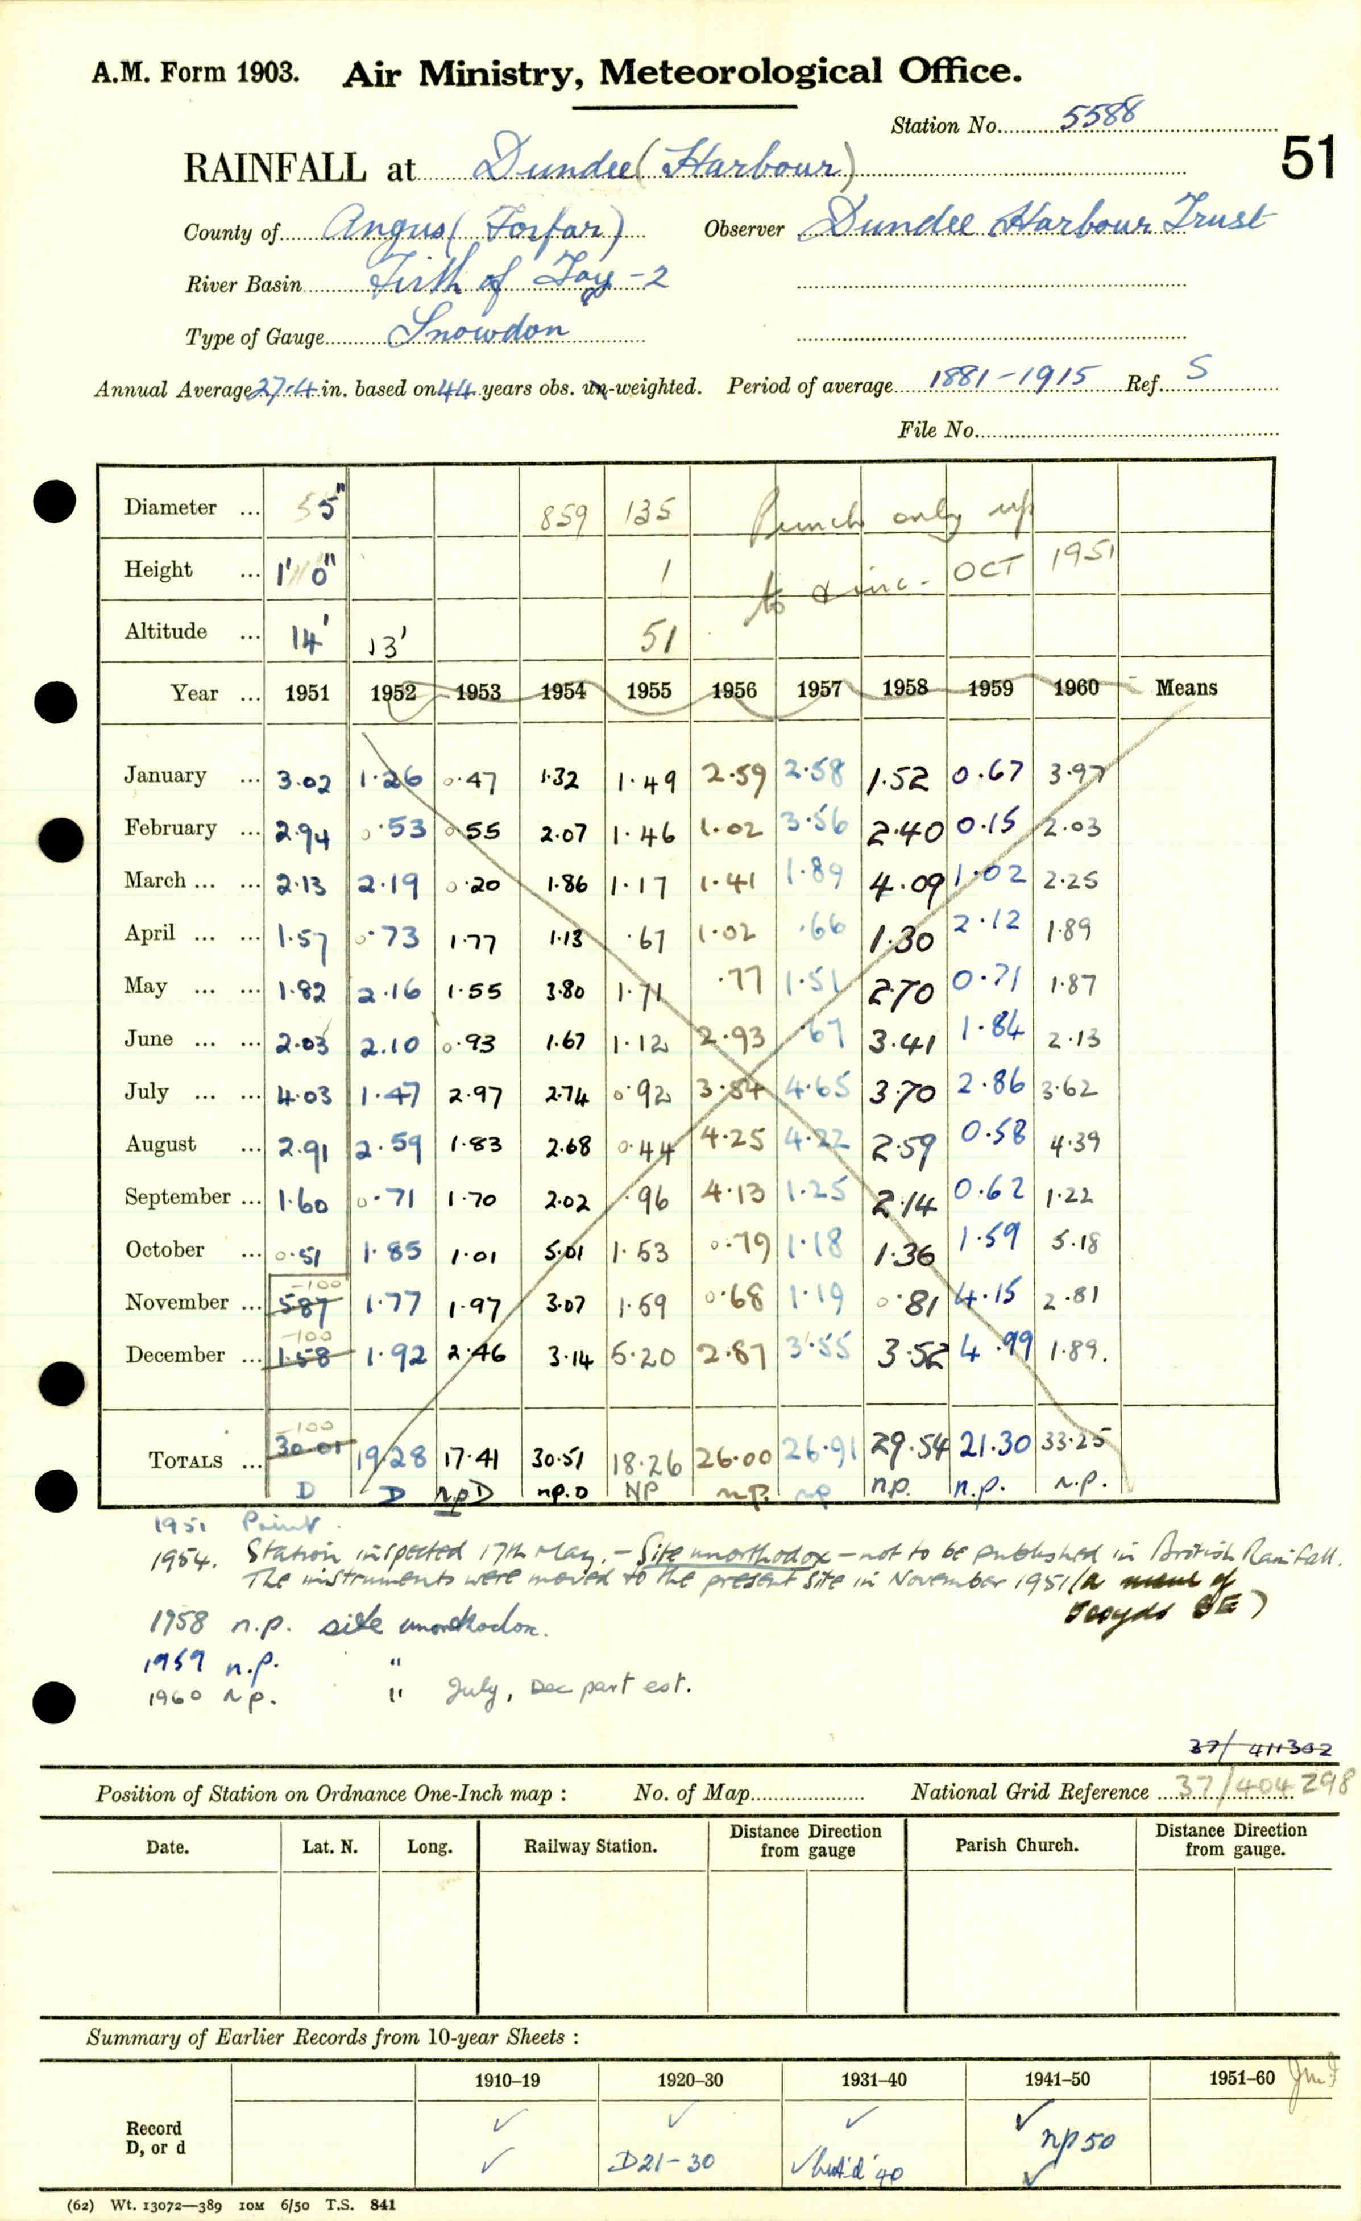 A.M. Form 1903. Air Ministry, Meteorological Office.
Station No. 5588
51
RAINFALL at Dundee (Harbour)
County of Angus (Forfar) Observer Dundee Harbour Trust
River Basin Firth of Tay - 2
Type of Gauge Snowdon
Annual Average 27.4 in. based on 44 years obs. un-weighted. Period of average 1881-1915 Ref. S
File No.
Diameter ... 5" 859 135 Punch only up
Height ... 1' 0" 1 to & inc. OCT 1951
Altitude ... 14' 13' 51
Year ... 1951 1952 1953 1954 1955 1956 1957 1958 1959 1960 Means
January ... 3.02 1.26 0.47 1.32 1.49 2.59 2.58 1.52 0.67 3.97
February ... 2.94 0.53 0.55 2.07 1.46 1.02 3.56 2.40 0.15 2.03
March ... ... 2.13 2.19 0.20 1.86 1.17 1.41 1.89 4.09 1.02 2.25
April ... ... 1.57 0.73 1.77 1.13 .67 1.02 .66 1.30 2.12 1.89
May ... ... 1.82 2.16 1.55 3.80 1.71 .77 1.51 2.70 0.71 1.87
June ... ... 2.03 2.10 0.93 1.67 1.12 2.93 .67 3.41 1.84 2.13
July ... ... 4.03 1.47 2.97 2.74 0.92 3.84 4.65 3.70 2.86 3.62
August ... 2.91 2.59 1.83 2.68 0.44 4.25 4.22 2.59 0.58 4.39
September ... 1.60 0.71 1.70 2.02 .96 4.13 1.25 2.14 0.62 1.22
October ... 0.51 1.85 1.01 5.01 1.53 0.79 1.18 1.36 1.59 5.18
-100
November ... 5.87 1.77 1.97 3.07 1.59 0.68 1.19 0.81 4.15 2.81
-100
December ... 1.58 1.92 2.46 3.14 5.20 2.87 3.55 3.52 4.99 1.89.
-100
TOTALS ... 30.01 19.28 17.41 30.51 18.26 26.00 26.91 29.54 21.30 33.25
D D npD np.D NP n.p. np n.p. n.p. n.p.
1951 Print.
1954. Station inspected 17th May. - Site unorthodox - not to be published in British Rainfall.
The instruments were moved to the present site in November 1951 (a
SE)
1958 n.p. site unorthodox.
1959 n.p. "
1960 n.p. " July, Dec part est.
37/411302
Position of Station on Ordnance One-Inch map : No. of Map National Grid Reference 37/404298
Date. Lat. N. Long. Railway Station. Distance Direction from gauge Parish Church. Distance Direction from gauge.
Summary of Earlier Records from 10-year Sheets :
1910–19 1920–30 1931–40 1941–50 1951–60
Record ✓ ✓ ✓ ✓ np 50
D, or d ✓ D21-30 ✓ 40 ✓
(62) Wt. 13072—389 10M 6/50 T.S. 841